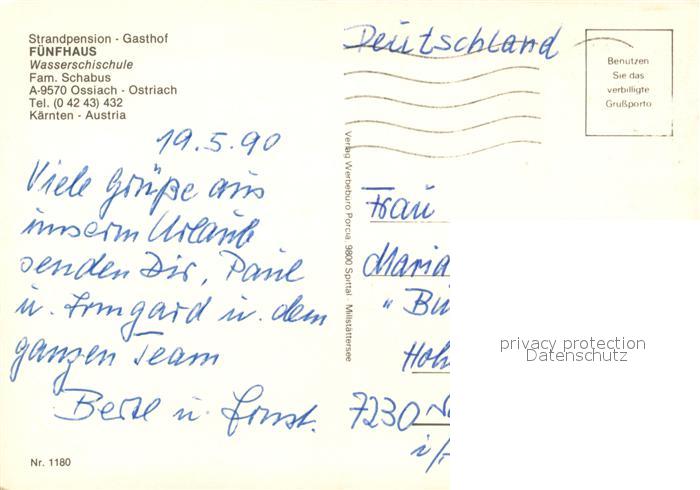 Strandpension - Gasthof
FÜNFHAUS
Wasserschischule
Fam. Schabus
A-9570 Ossiach - Ostriach
Tel. (0 42 43) 432
Kärnten - Austria
19.5.90
Viele Grüße aus
unserm Urlaub
senden Dir, Paul
u. Irmgard u. dem
ganzen Team
Bertl u. Ernst.
Nr. 1180
Verlag Werbebüro Porcia 9800 Spittal - Millstättersee
Deutschland
Benutzen
Sie das
verbilligte
Grußporto
Frau
Maria
" Bu
Hoh
7230
i/
privacy protection
Datenschutz